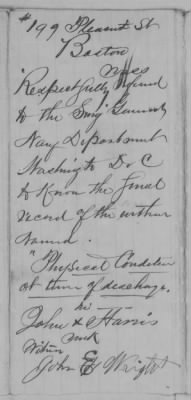 #199 Pleasant St
Boston
Mass
Respectfully refered
to the Surg General
Navy Department
Washingto D.C
to Know the final
record of the within
named.
"Physical Condition
at time of discharge.
his
John x Harris
mark
Witness
John E Wright